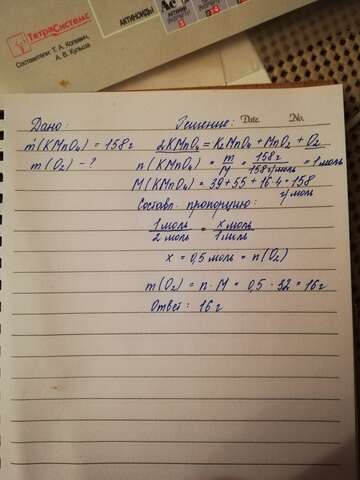 ТетраСистемс
Составители: Т. А. Колевич,
А. В. Кулыса
АКТИНОИДЫ
Ac
Дано:
Решение: Date. No.
m(KMnO₄) = 158 г
2KMnO₄ = K₂MnO₄ + MnO₂ + O₂
m(O₂) - ?
n(KMnO₄) = m/M = 158 г/158 г/моль = 1 моль
M(KMnO₄) = 39 + 55 + 16·4 = 158 г/моль
Составл. пропорцию:
1 моль/2 моль = x моль/1 моль
x = 0,5 моль = n(O₂)
m(O₂) = n · M = 0,5 · 32 = 16 г
Ответ: 16 г